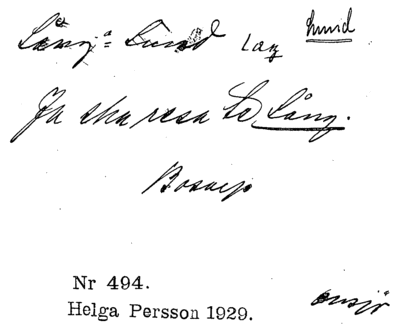 Lång= Lund Lund
Ja ska resa te Lång.
Bosarp
Nr 494.
Helga Persson 1929.
Onsjö